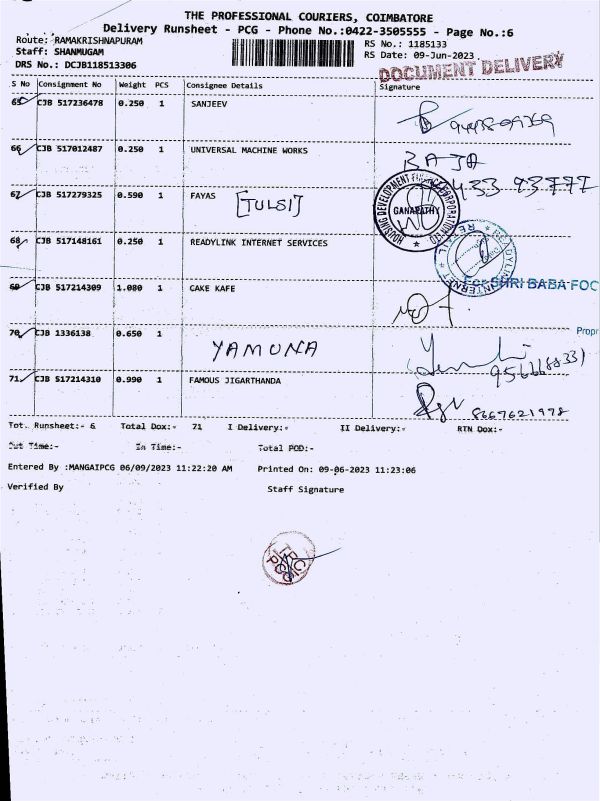 THE PROFESSIONAL COURIERS, COIMBATORE
Delivery Runsheet - PCG - Phone No.:0422-3505555 - Page No.:6
Route: RAMAKRISHNAPURAM
RS No.: 1185133
Staff: SHANMUGAM
RS Date: 09-Jun-2023
DRS No.: DCJB118513306
DOCUMENT DELIVERY
S No Consignment No Weight PCS Consignee Details Signature
65 CJB 517236478 0.250 1 SANJEEV
66 CJB 517012487 0.250 1 UNIVERSAL MACHINE WORKS
RAJA
67 CJB 517279325 0.590 1 FAYAS [TULSI]
HOUSING DEVELOPMENT FINANCE CORPORATION LTD
GANAPATHY
68 CJB 517148161 0.250 1 READYLINK INTERNET SERVICES
69 CJB 517214309 1.080 1 CAKE KAFE
For SHRI BABA FOO
70 CJB 1336138 0.650 1
Propr
YAMUNA
71 CJB 517214310 0.990 1 FAMOUS JIGARTHANDA
8667621978
Tot. Runsheet:- 6 Total Dox:- 71 I Delivery:- II Delivery:- RTN Dox:-
Out Time:- In Time:- Total POD:-
Entered By :MANGAIPCG 06/09/2023 11:22:20 AM Printed On: 09-06-2023 11:23:06
Verified By Staff Signature